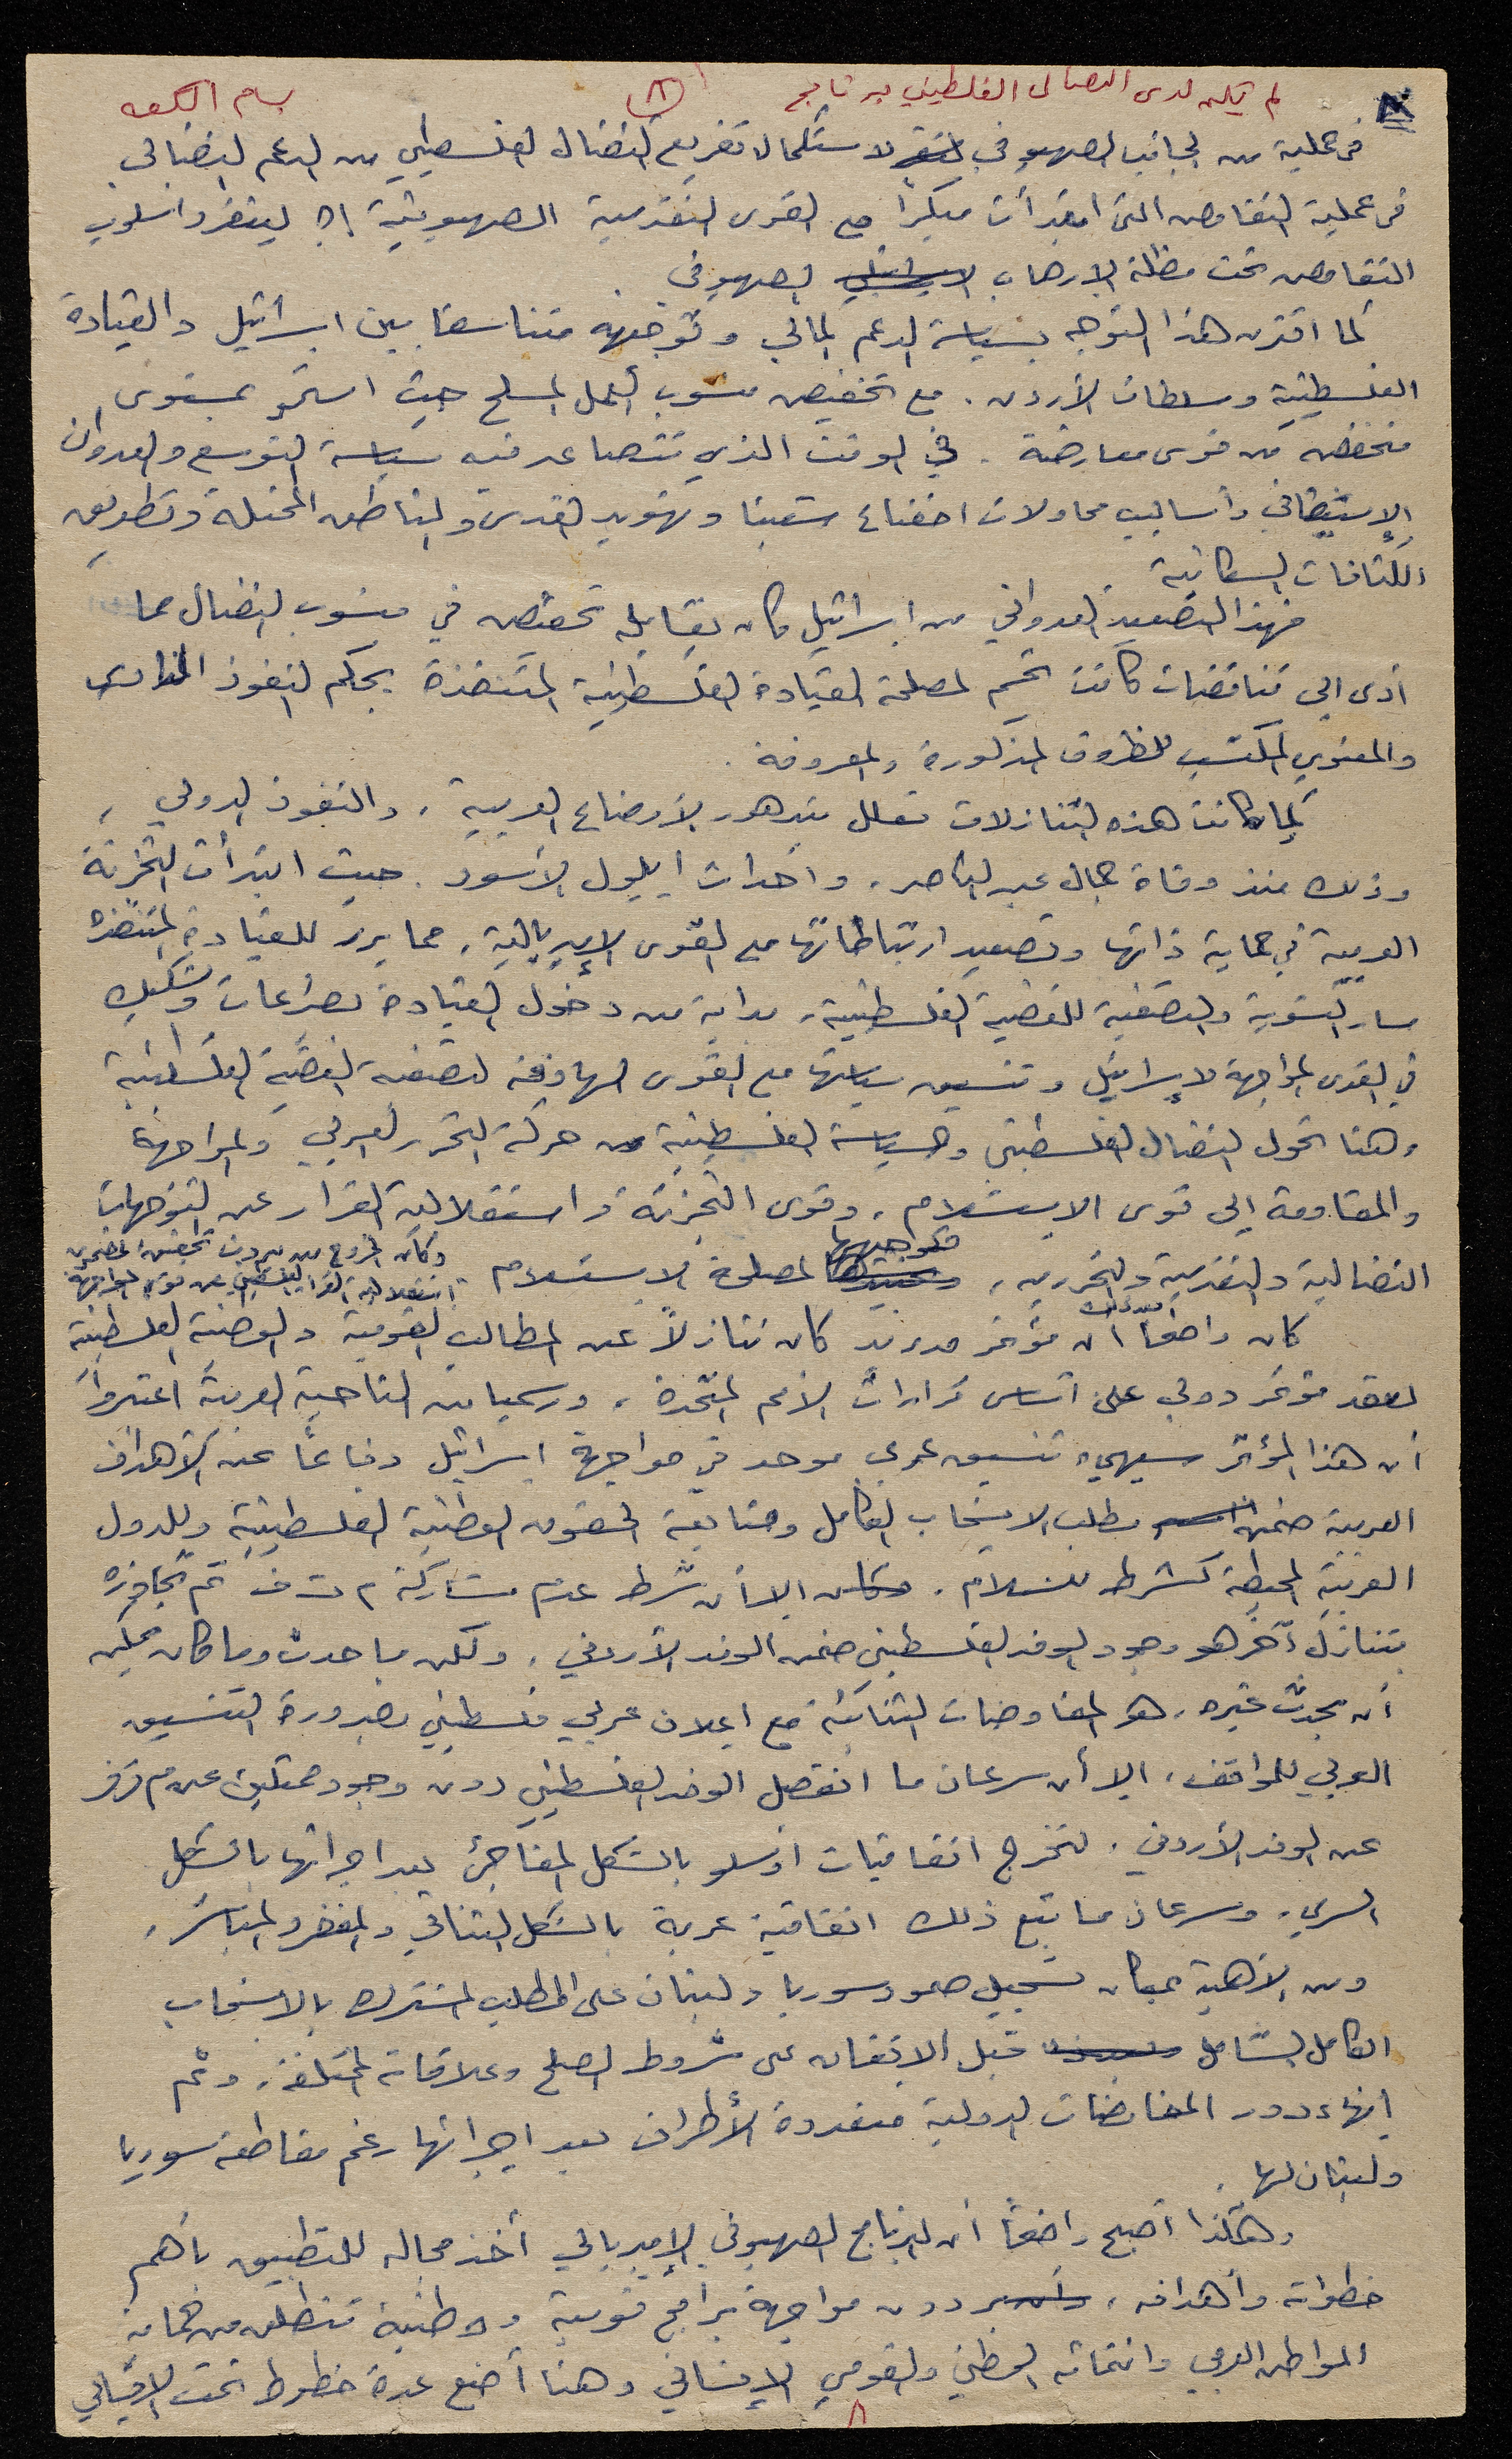 لم يكن لدى النضال الفلسطيني برنامج ٨ بسام الكعبي
في عملية من الجانب الصهيوني لاستكمال تفريغ النضال الفلسطيني من الدعم النضالي
في عملية التفاوض التي ابتدأت مبكراً مع القوى التقدمية الصهيونية إلا لينفرد أسلوب
التفاوض تحت مظلة الإرهاب الصهيوني
كما اقترن هذا التوجه بسياسة الدعم المالي وتوجيهه متناسقا بين اسرائيل والقيادة
الفلسطينية وسلطات الأردن . مع تخفيض منسوب العمل المسلح حيث استمر بمستوى
منخفض من قوى معارضة . في الوقت الذي تتصاعد فيه سياسة التوسع والعدوان
الإستيطاني وأساليب محاولات اخضاع شعبنا وتهويد القدس والمناطق المحتلة وتطويق
الكثافات السكانية
فهذا التصعيد العدواني من اسرائيل كان يقابله تخفيض في منسوب النضال مما
أدى الى تناقضات كانت تحسم لمصلحة القيادة الفلسطينية المتنفذة بحكم النفوذ المادي
والمعنوي المكتسب للظروف المذكورة والمعروفة .
كما كانت هذه التنازلات تعلل بتدهور الأوضاع العربية ، والنفوذ الدولي ،
وذلك منذ وفاة جمال عبد الناصر ، وأحداث أيلول الأسود . حيث ابتدأت التجزئة
العربية في حماية ذاتها وتصعيد ارتباطاتها مع القوى الإمبريالية ، مما يبرر للقيادة المتنفذة
مسار التسوية والتصفية للقضية الفلسطينية ، بداية من دخول القيادة بصراعات وتشكيك
في القوى المواجهة لإسرائيل وتنسيق سياستها مع القوى الهادفة لتصفية القضية الفلسطينية
وهنا تحول النضال الفلسطيني والسياسة الفلسطينية من حركة التحرر العربي والمواجهة
والمقاومة إلى قوى الاستسلام ، وقوى التجزئة واستقلالية القرار عن التوجهات
النضالية والتقدمية والتحررية ، لمصلحة الاستسلام . وكان الخروج من بيروت
استقلالية القرار الفلسطيني عن قوى المواجهة
كان واضحا أن مؤتمر مدريد كان تنازلاً عن المطالب القومية والوطنية الفلسطينية
لعقد مؤتمر دولي على أساس قرارات الأمم المتحدة ، ورسميا من الناحية العربية اعتبروا
أن هذا المؤتمر سيهيء تنسيق عربي موحد في مواجهة اسرائيل دفاعاً عن الأهداف
العربية ضمن مطلب الانسحاب الكامل ومتابعة الحقوق الوطنية الفلسطينية وللدول
العربية المحيطة كشرط للسلام . إلا أن شرط عدم مشاركة م ت ف تم تجاوزه
بتنازل آخر هو وجود الوفد الفلسطيني ضمن الوفد الأردني ، ولكن ما حدث وما كان يمكن
أن يحدث غيره ، هو المفاوضات الثنائية مع اعلان عربي فلسطيني بضرورة التنسيق
العربي للمواقف ، إلا أن سرعان ما انفصل الوفد الفلسطيني دون وجود ممثلين عن
عن الوفد الأردني . لتخرج اتفاقيات أوسلو بالشكل المفاجئ بعد اجرائها بالشكل
السري ، وسرعان ما تبع ذلك اتفاقية عربة بالشكل الثنائي والمنفرد والمباشر ،
ومن الأهمية بمكان تسجيل صمود سوريا ولبنان على المطلب المشترك بالانسحاب
الكامل الشامل قبل الاتفاق على شروط الصلح وعلاقاته المختلفة ، وتم
إنهاء دور المفاوضات الدولية متعددة الأطراف بعد اجرائها رغم مقاطعة سوريا
ولبنان لها .
وهكذا أصبح واضحاً أن البرنامج الصهيوني الإمبريالي أخذ مجاله للتطبيق بأهم
خطواته وأهدافه ، دون مواجهة برامج قومية ووطنية تنطلق من حماية
المواطن العربي وانتمائه الوطني والقومي الإنساني وهنا أضع عدة خطوط تحت الإنساني
٨